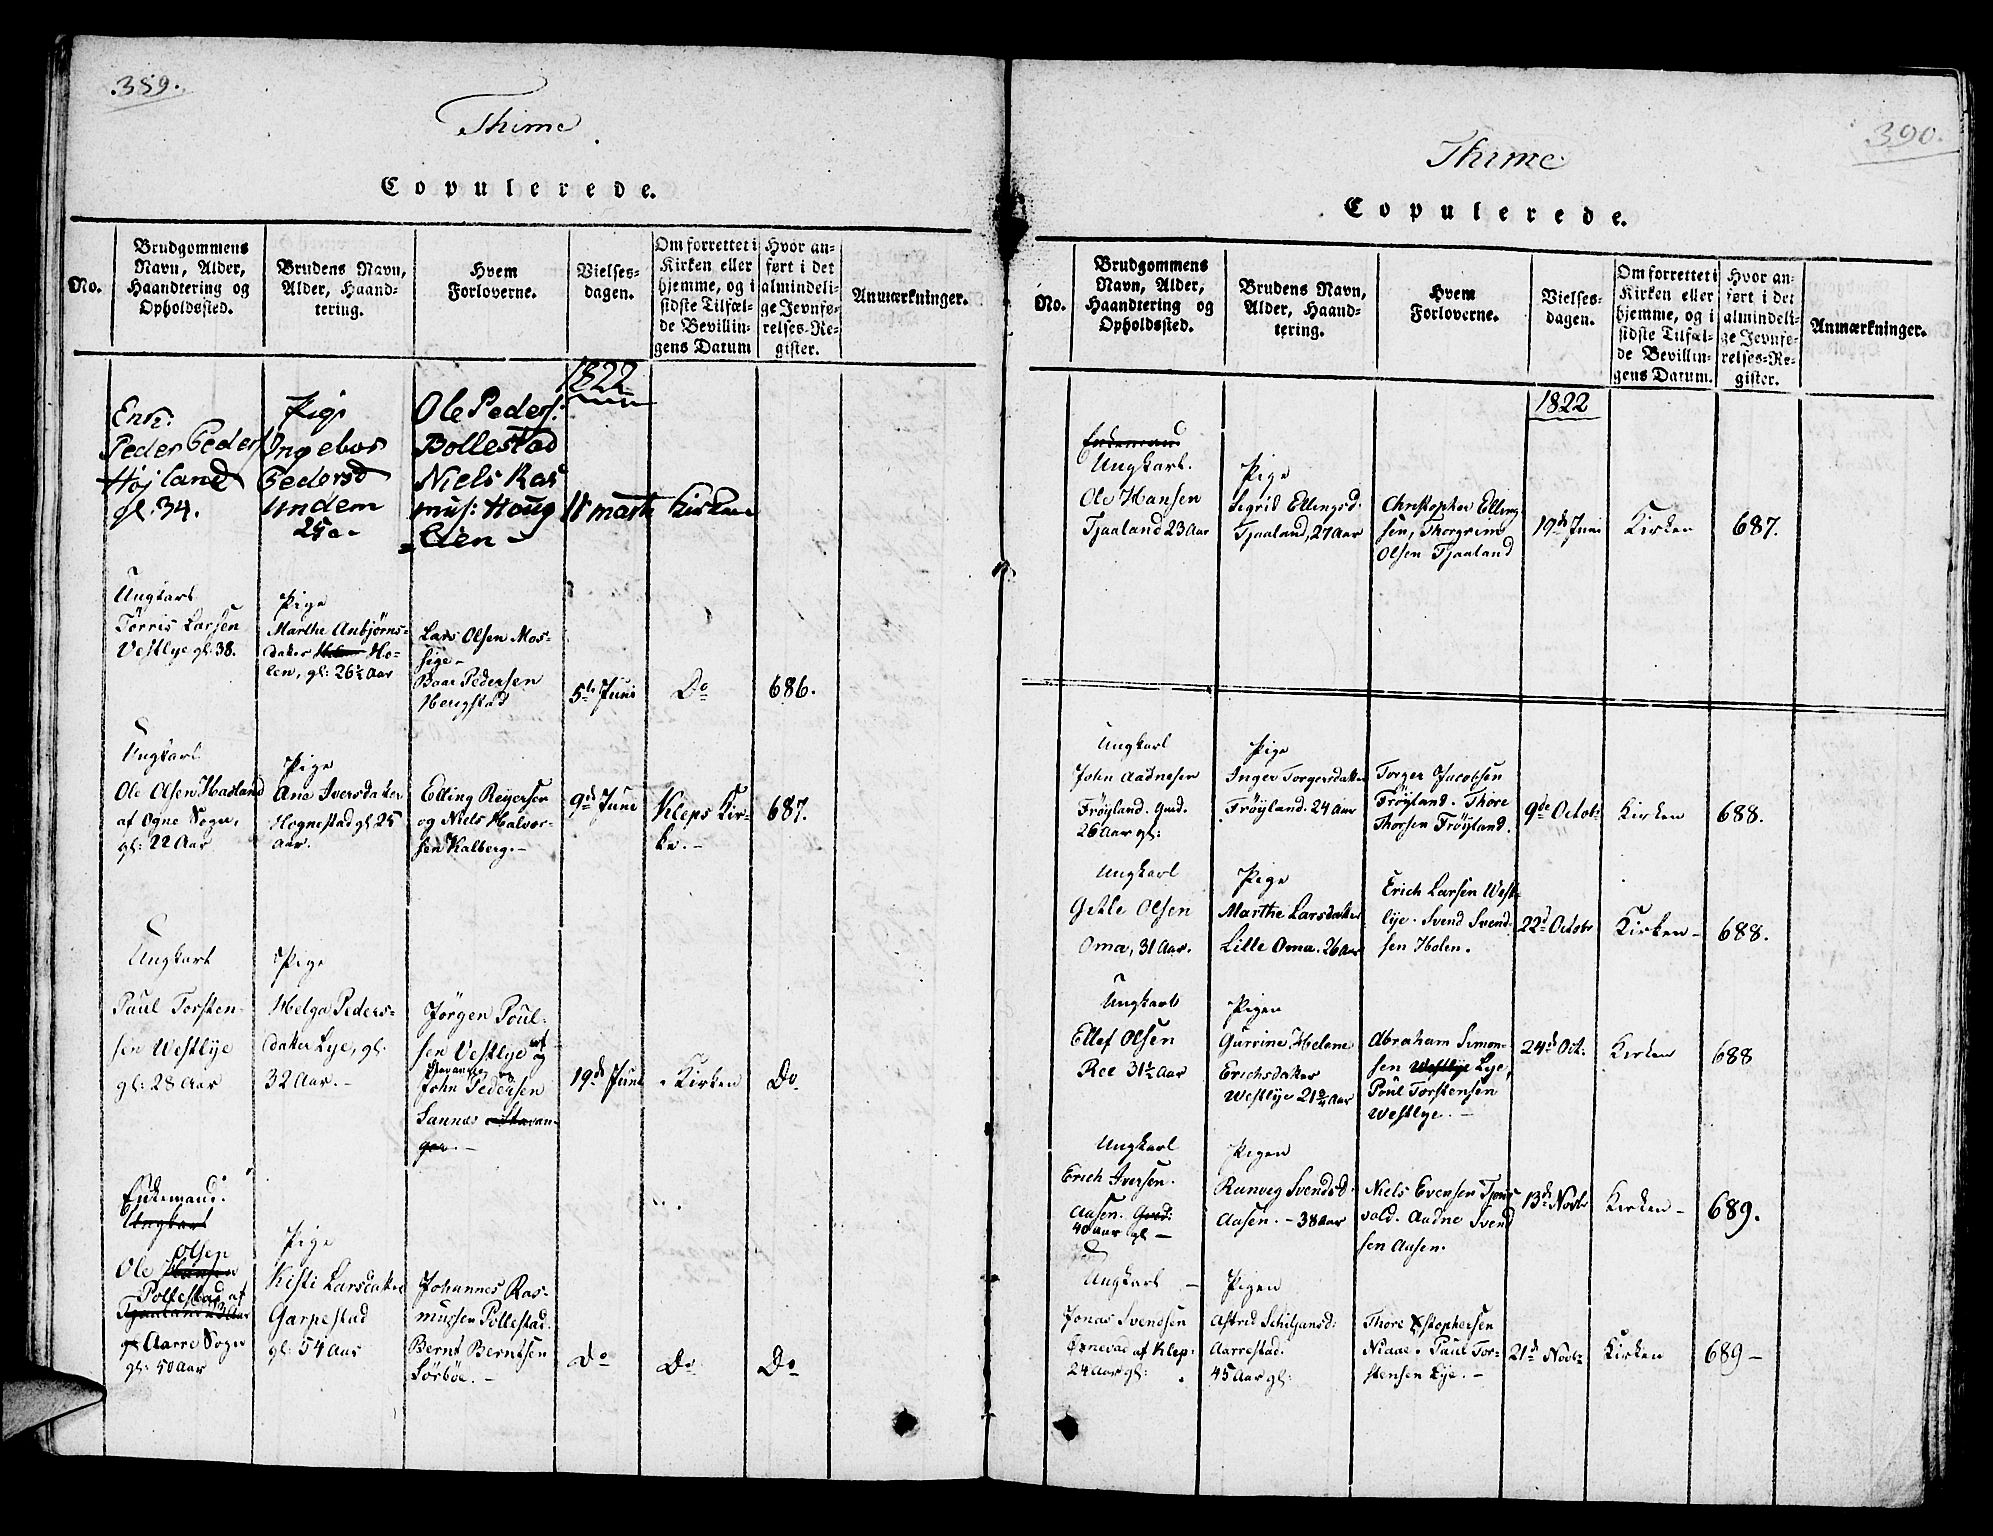 389.
Thime
Copulerede.
No.
Brudgommens
Navn, Alder,
Haandtering og
Opholdssted.
Brudens Navn,
Alder, Haand-
tering.
Hvem
Forloverne.
Vielses-
dagen.
Om forrettet i
Kirken eller
hjemme, og i
sidste Tilfæl-
de Bevillin-
gens Datum
Hvor an-
ført i det
almindeli-
ge Jevnfø-
relses-Re-
gister.
Anmærkninger.
1822
Enk:
Peder Peders
Højland
gl. 34.
Pige
Ingebor
Pedersd
Undem
25 a-
Ole Peders:
Bollestad
Niels Ras
mus: Houg
=Eien -
18 marti
Kirken
Ungkarl
Tørris Larsen
Vestlye gl: 38.
Pige
Marthe Anbjørns-
datter Ho-
len, gl: 26½ Aar
Lars Olsen Mos-
sige-
Baar Pedersen
Herigstad
5te Juni
Do
686.
Ungkarl
Ole Olsen Hadland
af Ogne Sogn,
gl: 22 Aar
Pige
Ane Iversdatter
Hognestad gl 25
Aar.
Elling Reyersen
og Niels Halvor-
sen Kalberg.-
9de Juni
Kleps Kir-
ke.-
687.
Ungkarl
Paul Torsten-
sen Westlye
gl: 28 Aar
Pige
Helga Peders-
datter Lye, gl:
32 Aar.-
Jørgen Poul-
sen Vestlye og
Stavanger
John Pedersen
Sannes Stavan-
ger.-
19de Juni
Kirken
Do
Enkemand.
Ungkarl
Olsen
Ole Hansen
Pollestad af
Tjaaland 23 Aar
Aarre Sogn
gl: 50 Aar
Pige
Kisti Larsdatter
Garpestad
gl: 54 Aar
Johannes Ras-
mussen Pollestad.
Bernt Berntsen
Sørbøe.-
Do
Do
Do
390.
Thime
Copulerede.
No.
Brudgommens
Navn, Alder,
Haandtering og
Opholdssted.
Brudens Navn,
Alder, Haand-
tering.
Hvem
Forloverne.
Vielses-
dagen.
Om forrettet i
Kirken eller
hjemme, og i
sidste Tilfæl-
de Bevillin-
gens Datum.
Hvor an-
ført i det
almindeli-
ge Jevnfø-
relses-Re-
gister.
Anmærkninger.
1822
Enkemand
Ungkarl.
Ole Hansen
Tjaaland 23 Aar
Pige
Sigrid Ellingsd:
Tjaaland, 27 Aar
Christopher Elling-
sen, Thorgrim
Olsen Tjaaland
19de Juni
Kirken
687.
Ungkarl
John Aadnesen
Frøyland. Gmd.
26 Aar gl:
Pige
Inger Torgersdatter
Frøyland. 24 Aar
Torger Jacobsen
Frøyland. Thore
Thorsen Frøyland.
9de Octobr
Kirken
688.
Ungkarl
Getle Olsen
Oma, 31 Aar.
Pige
Marthe Larsdatter
Lille Oma. 26 Aar
Erich Larsen West-
lye. Svend Svend-
sen Holen.
22d Octobr
Kirken-
688.
Ungkarl
Ellef Olsen
Ree 31½ Aar
Pigen
Gurrine Helene
Erichsdatter
Westlye 21¾ Aar
Abraham Simon-
sen Westlye Lye,
Poul Torstensen
Westlye.-
24d Oct.
Kirken
688
Ungkarl
Erich Iversen.
Aasen. Gmd:
40 Aar gl-
Pigen
Ranveg Svendsd.
Aasen.- 38 Aar
Niels Evensen Tjens
vold. Aadne Svend
sen Aasen.
13de Novbr
Kirken-
689.
Ungkarl -
Jonas Svendsen
Ørnevad af Klep.
24 Aar gl:
Pigen
Astrid Schiljansd:
Aarrestad.
45 Aar gl:
Thore Xstophersen
Niaae. Paul Tor-
stensen Lye.-
21d Novbr
Kirken
689-